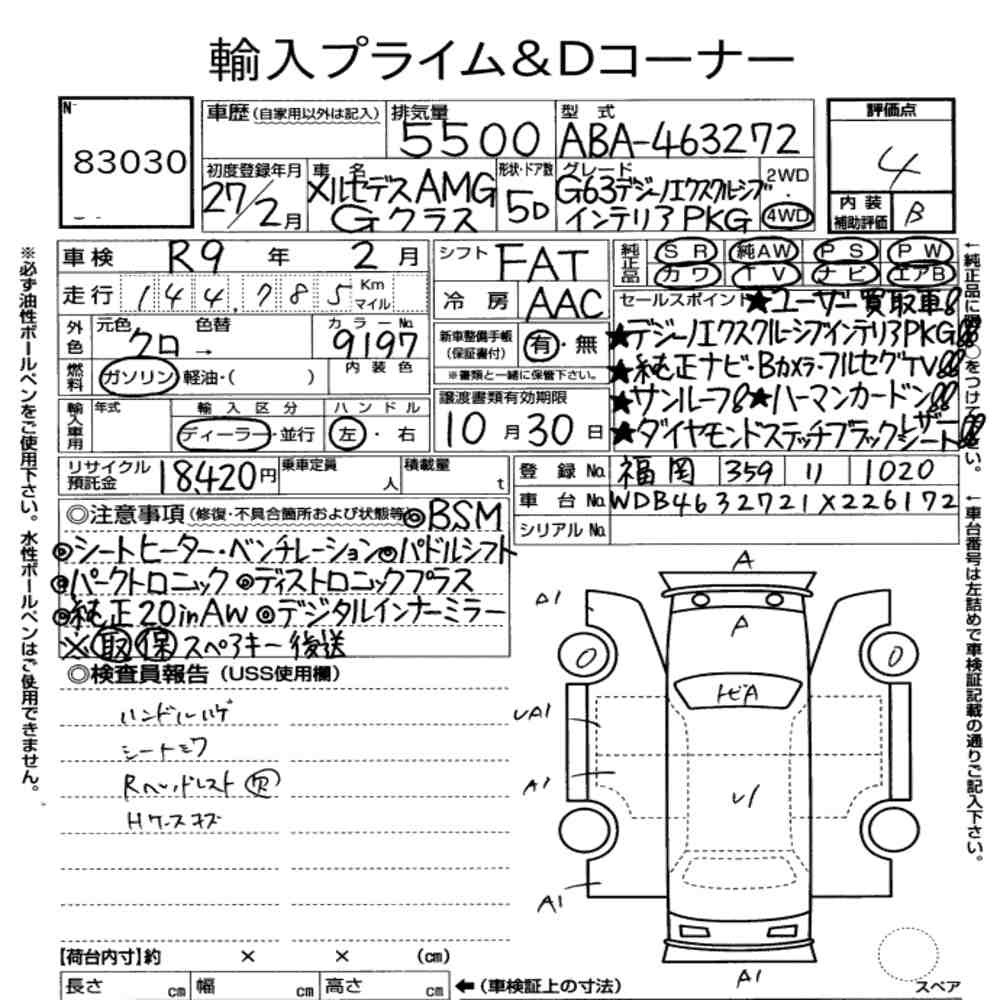 輸入プライム&Dコーナー
No
83030
車歴 (自家用以外は記入)
排気量
5500
型式
ABA-463272
評価点
4
初度登録年月
27/2月
車名
メルセデスAMG
Gクラス
形状・ドア数
5D
グレード
G63デジーノエクスクルーシブ
インテリアPKG
2WD
・
4WD
内装
補助評価
B
車検 R9 年 2 月
走行 144,785 Km マイル
シフト FAT
冷房 AAC
純正品
SR 純AW PS PW
カワ TV ナビ エアB
外色
元色 色替 カラーNo.
クロ → 9197
燃料
ガソリン・軽油・( )
内装色
新車整備手帳
(保証書付)
有・無
※書類と一緒に保管下さい。
セールスポイント★ユーザー買取車!!
★デジーノエクスクルーシブインテリアPKG!!
★純正ナビ・Bカメラ・フルセグTV!!
★サンルーフ!!★ハーマンカードン!!
★ダイヤモンドステッチブラックレザーシート!!
輸入車用
年式
輸入区分
ディーラー・並行
ハンドル
左・右
譲渡書類有効期限
10月30日
リサイクル預託金 18,420円
乗車定員 人
積載量 t
登録No. 福岡 359 11 1020
車台No. WDB4632721X226172
シリアルNo.
◎注意事項(修復・不具合箇所および状態等)◎BSM
◎シートヒーター・ベンチレーション◎パドルシフト
◎パークトロニック◎ディストロニックプラス
◎純正20inAW◎デジタルインナーミラー
※取保スペアキー後送
◎検査員報告(USS使用欄)
ハンドルハゲ
シートシワ
Rヘッドレスト欠
Hケースキズ
A
A
A1
トビA
UA1
A1
U1
A1
A1
【荷台内寸】約 × × (cm)
長さ cm 幅 cm 高さ cm ←(車検証上の寸法)
スペア
※必ず油性ボールペンをご使用下さい。水性ボールペンはご使用できません。
↑車台番号は左詰めで車検証記載の通りご記入下さい。